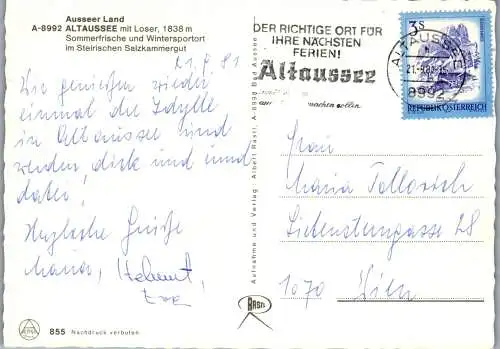 Ausseer Land
A-8992 ALTAUSSEE mit Loser, 1838 m
Sommerfrische und Wintersportort
im Steirischen Salzkammergut
21.9.81
Wir genießen wieder
einmal die Idylle
in Altaussee und
werden dick und rund
dabei!
Herzliche Grüße
Maria, Helmut,
855 Nachdruck verboten
Aufnahme und Verlag: Albert Rastl, A-8990 Bad Aussee
DER RICHTIGE ORT FÜR
IHRE NÄCHSTEN
FERIEN!
Altaussee
machen wollen
ALTAUSSEE
8992
3S
REPUBLIK ÖSTERREICH
Frau
Maria
Liechtensteingasse 28
1070 Wien
RASTL